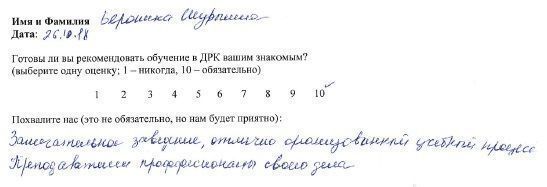 Имя и Фамилия Вероника Шурыгина
Дата: 26.10.18
Готовы ли вы рекомендовать обучение в ДРК вашим знакомым?
(выберите одну оценку; 1 – никогда, 10 – обязательно)
1 2 3 4 5 6 7 8 9 10✓
Похвалите нас (это не обязательно, но нам будет приятно):
Замечательное заведение, отлично организованный учебный процесс
Преподаватели профессионалы своего дела